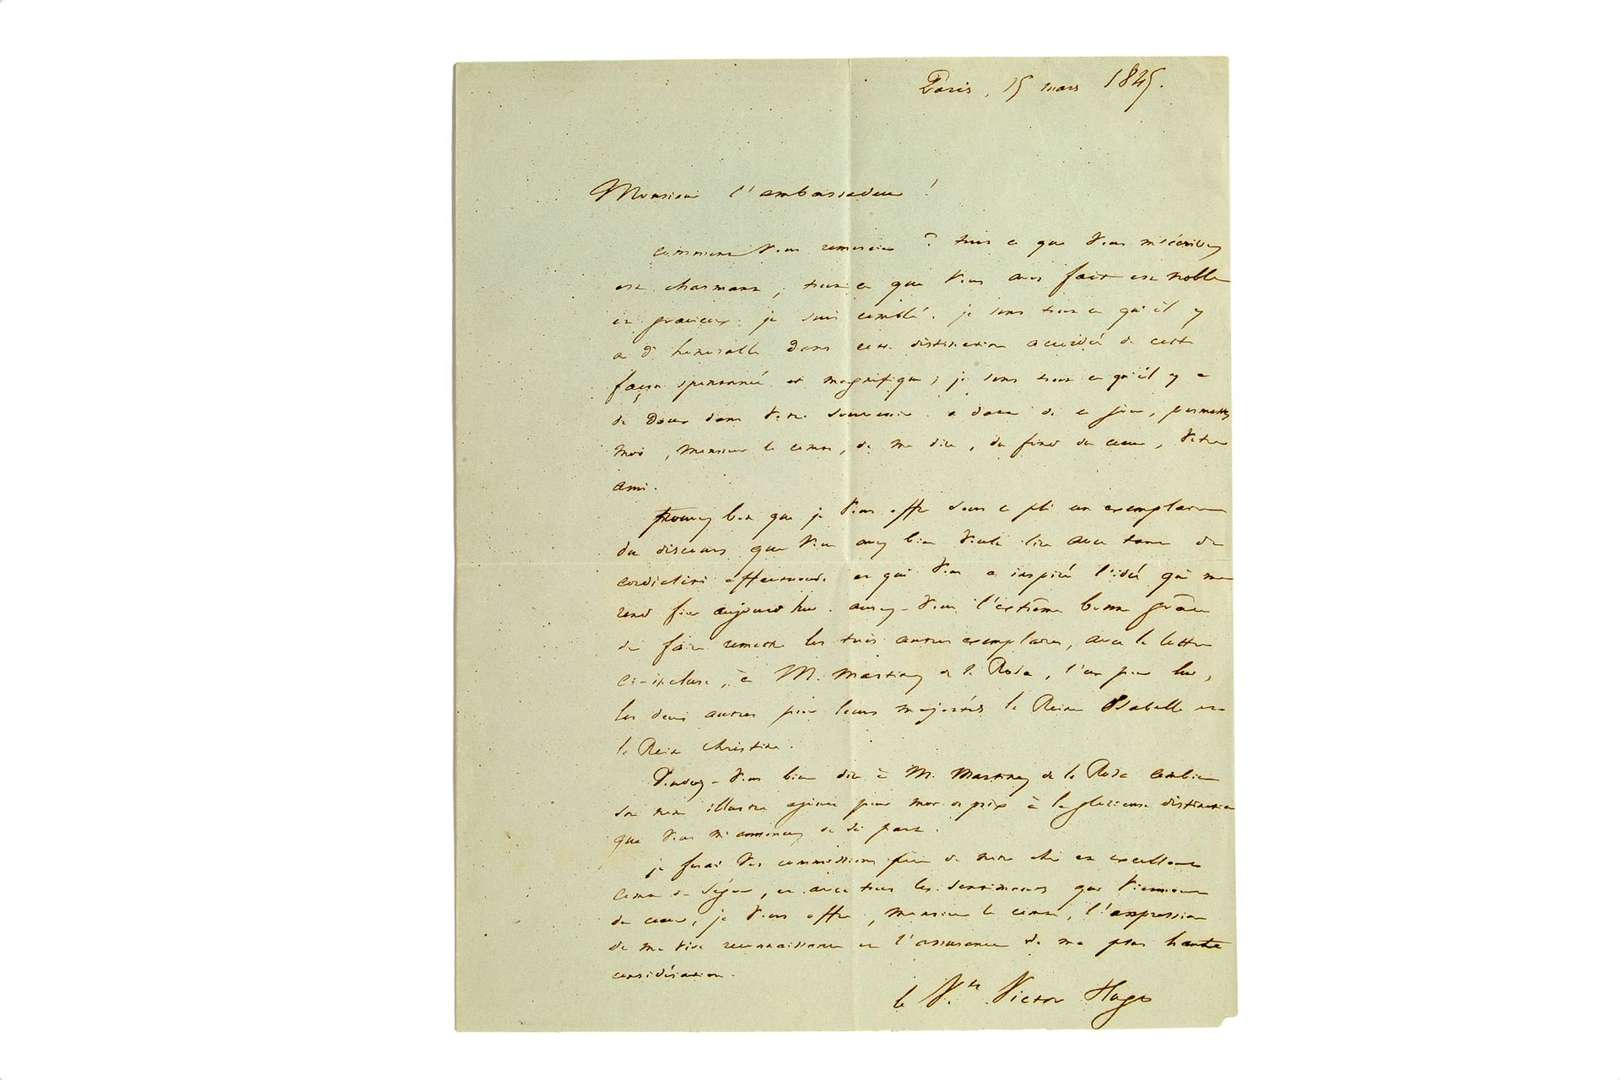 Paris, 15 mars 1845.
Monsieur l'ambassadeur !
comment vous remercier ? tout ce que vous m'écrivez
est charmant, tout ce que vous avez fait est noble
et gracieux. je suis comblé. je sens tout ce qu'il y
a d'honorable dans cette distinction accordée de cette
façon spontanée et magnifique ; je sens tout ce qu'il y a
de doux dans votre souvenir. à dater de ce jour, permettez
moi, Monsieur le comte, de me dire, du fond du cœur, votre
ami.
Trouvez bon que je vous offre sous ce pli un exemplaire
du discours que vous avez bien voulu lire avec tant de
cordialité affectueuse et qui vous a inspiré l'idée qui me
rend fier aujourd'hui. aurez-vous l'extrême bonne grâce
de faire remettre les trois autres exemplaires, avec la lettre
ci-incluse, à M. Martinez de la Rosa, l'un pour lui,
les deux autres pour leurs majestés la Reine Isabelle et
la Reine Christine.
Voudrez-vous bien dire à M. Martinez de la Rosa combien
son nom illustre ajoute pour moi de prix à la glorieuse distinction
que vous m'annoncez de sa part.
je ferai vos commissions près de notre cher et excellent
comte de Ségur, et avec tous les sentiments qui viennent
du cœur, je vous offre, monsieur le comte, l'expression
de ma vive reconnaissance et l'assurance de ma plus haute
considération.
le Vte Victor Hugo